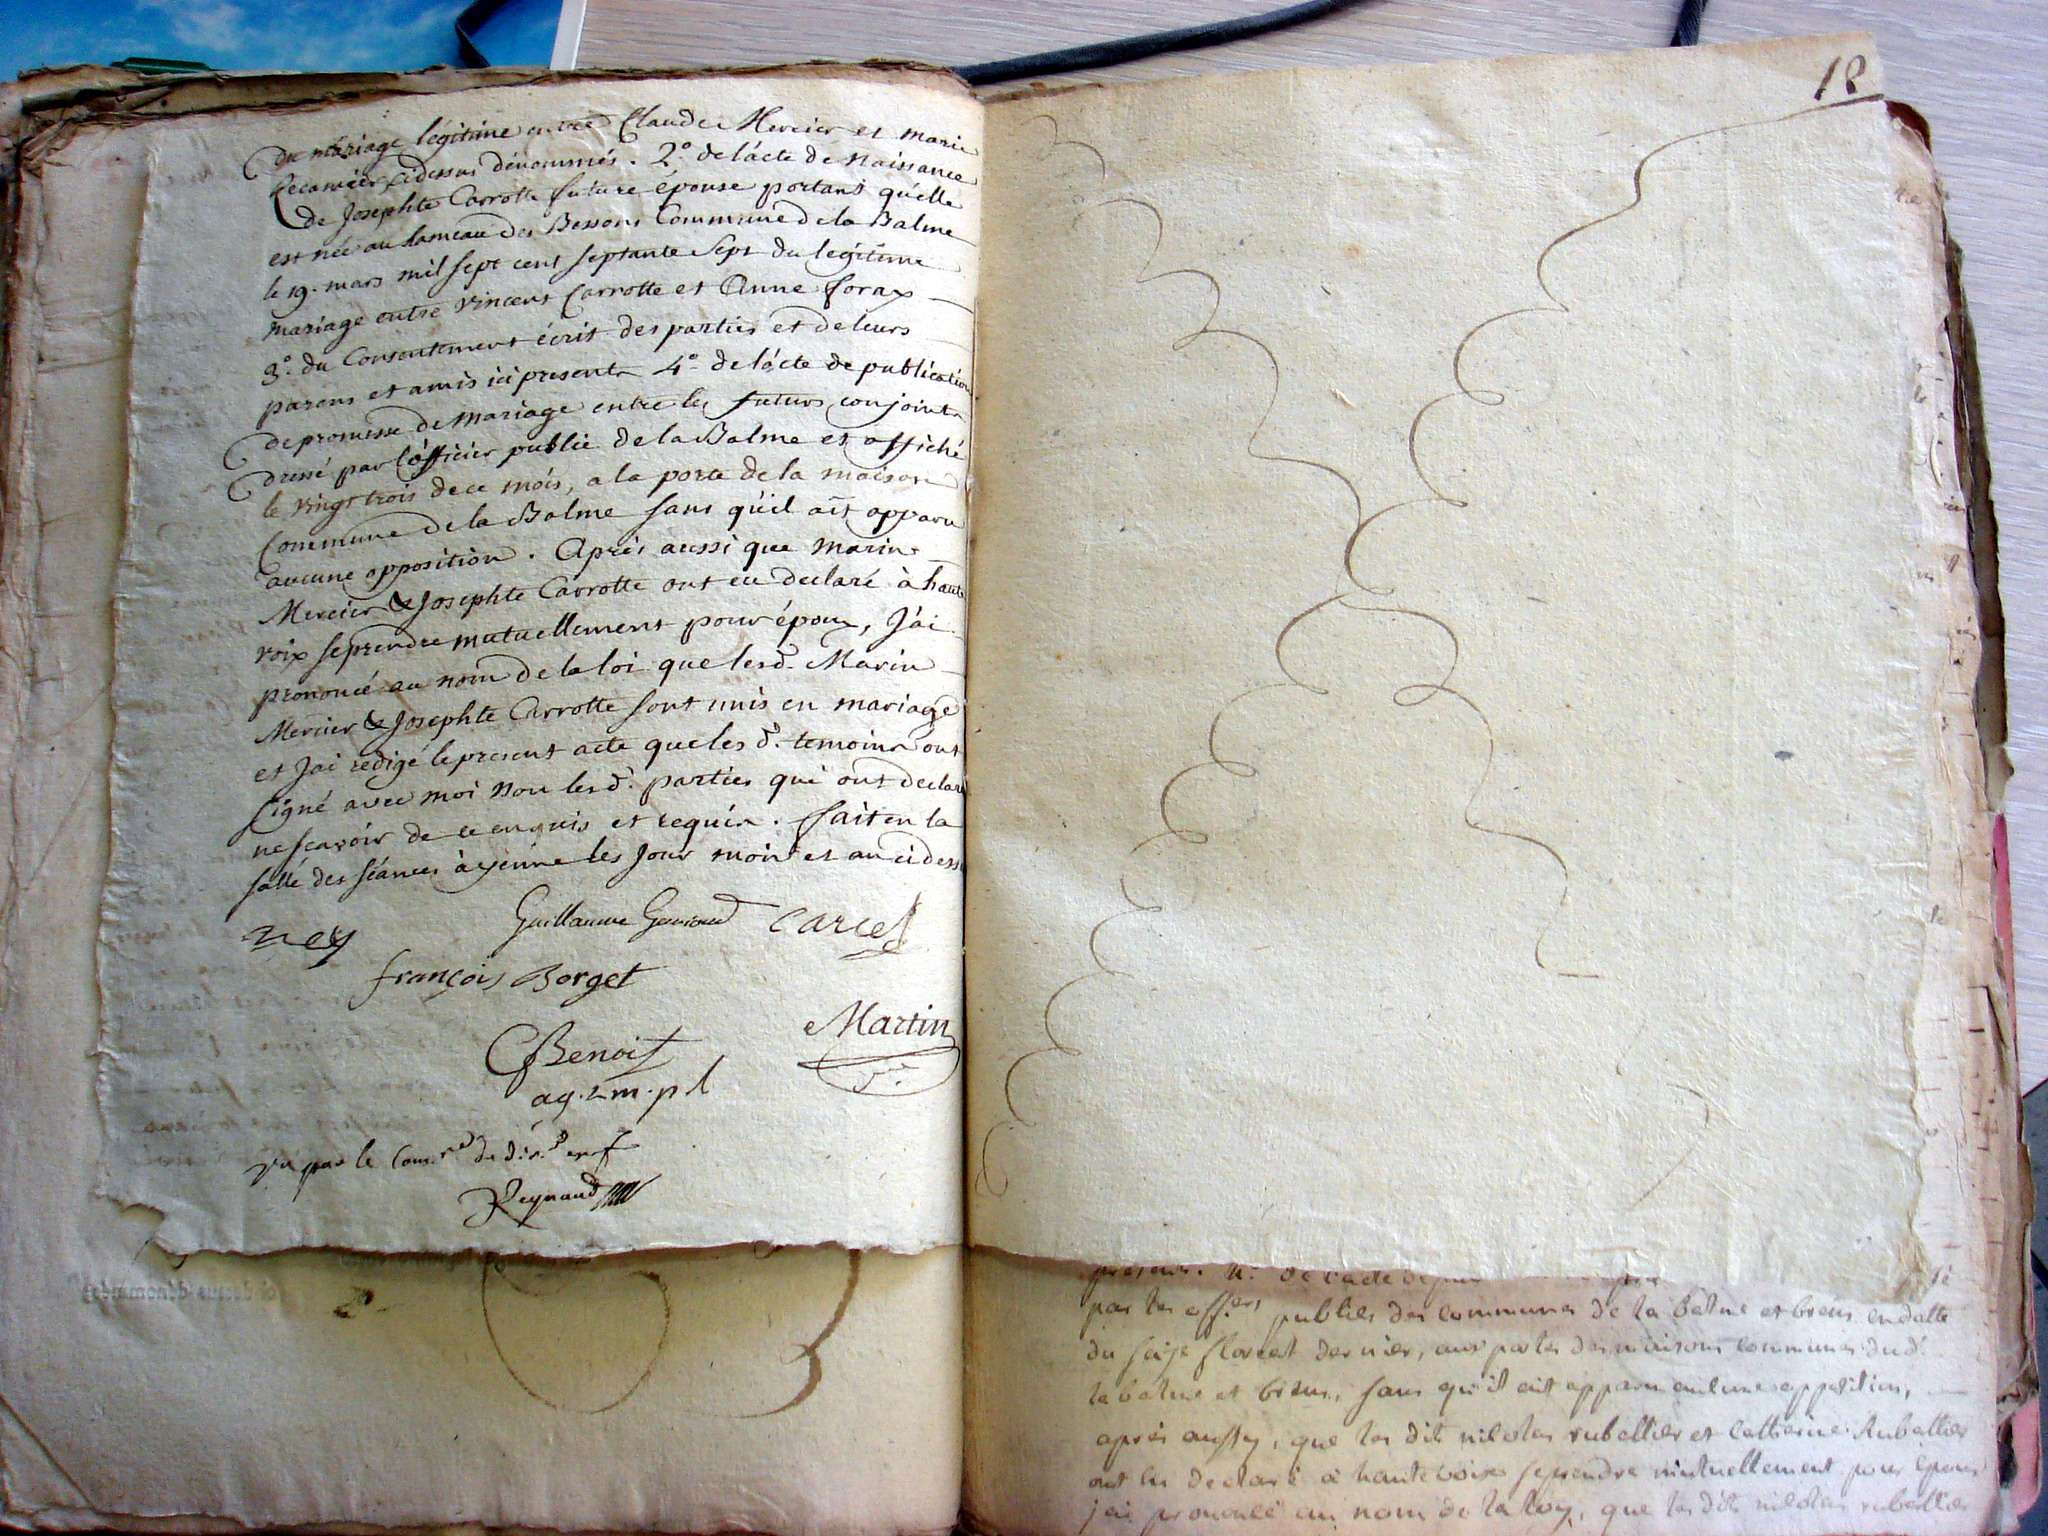 du mariage légitime entre Claude Mercier et marie
Recamier cidessus dénommés. 2.° de lácte de Naissance
de Josephte Carrotte future épouse portant qu'elle
est née au hameau des Bessons Commune de la Balme
le 19. mars mil sept cent septante sept du légitime
mariage entre vincent Carrotte et Anne forax
3.° du Consentement écrit des parties et de leurs
parens et amis ici presents 4.° de lácte de publication
de promesse de Mariage entre les futurs conjoints
dressé par l'officier public de la Balme et affiché
le vingt trois de ce mois, a la porte de la maison
Commune de la Balme sans qu'il ait apparu
aucune opposition. Après aussi que marin
Mercier & Josephte Carrotte ont eu declaré à haute
voix se prendre mutuellement pour époux, J'ai
prononcé au nom de la loi que lesd. Marin
Mercier & Josephte Carrotte sont unis en mariage
et J'ai redigé le present acte que les d. temoins ont
signé avec moi non les d. parties qui ont declaré
ne scavoir de ce enquis et requis. fait en la
salle des séances à yenne les Jour mois et an ci dessus
Ney Guillaume Carcel
françois Borget
CBenoit Martin
ag. m. p l
Vu par le
Reynaud
18
par les off.ers publics des communes de la balme et brens en datte
du seize floreal dernier, aux portes des maisons communes du d.
la balme et brens, sans qu'il ait apparu aucune opposition,
après aussy, que les dits nicolas rubellier et Catherine Rubellier
ont eu declaré à haute voix se prendre mutuellement pour époux
j'ai prononcé au nom de la loy, que les dits nicolas rubellier